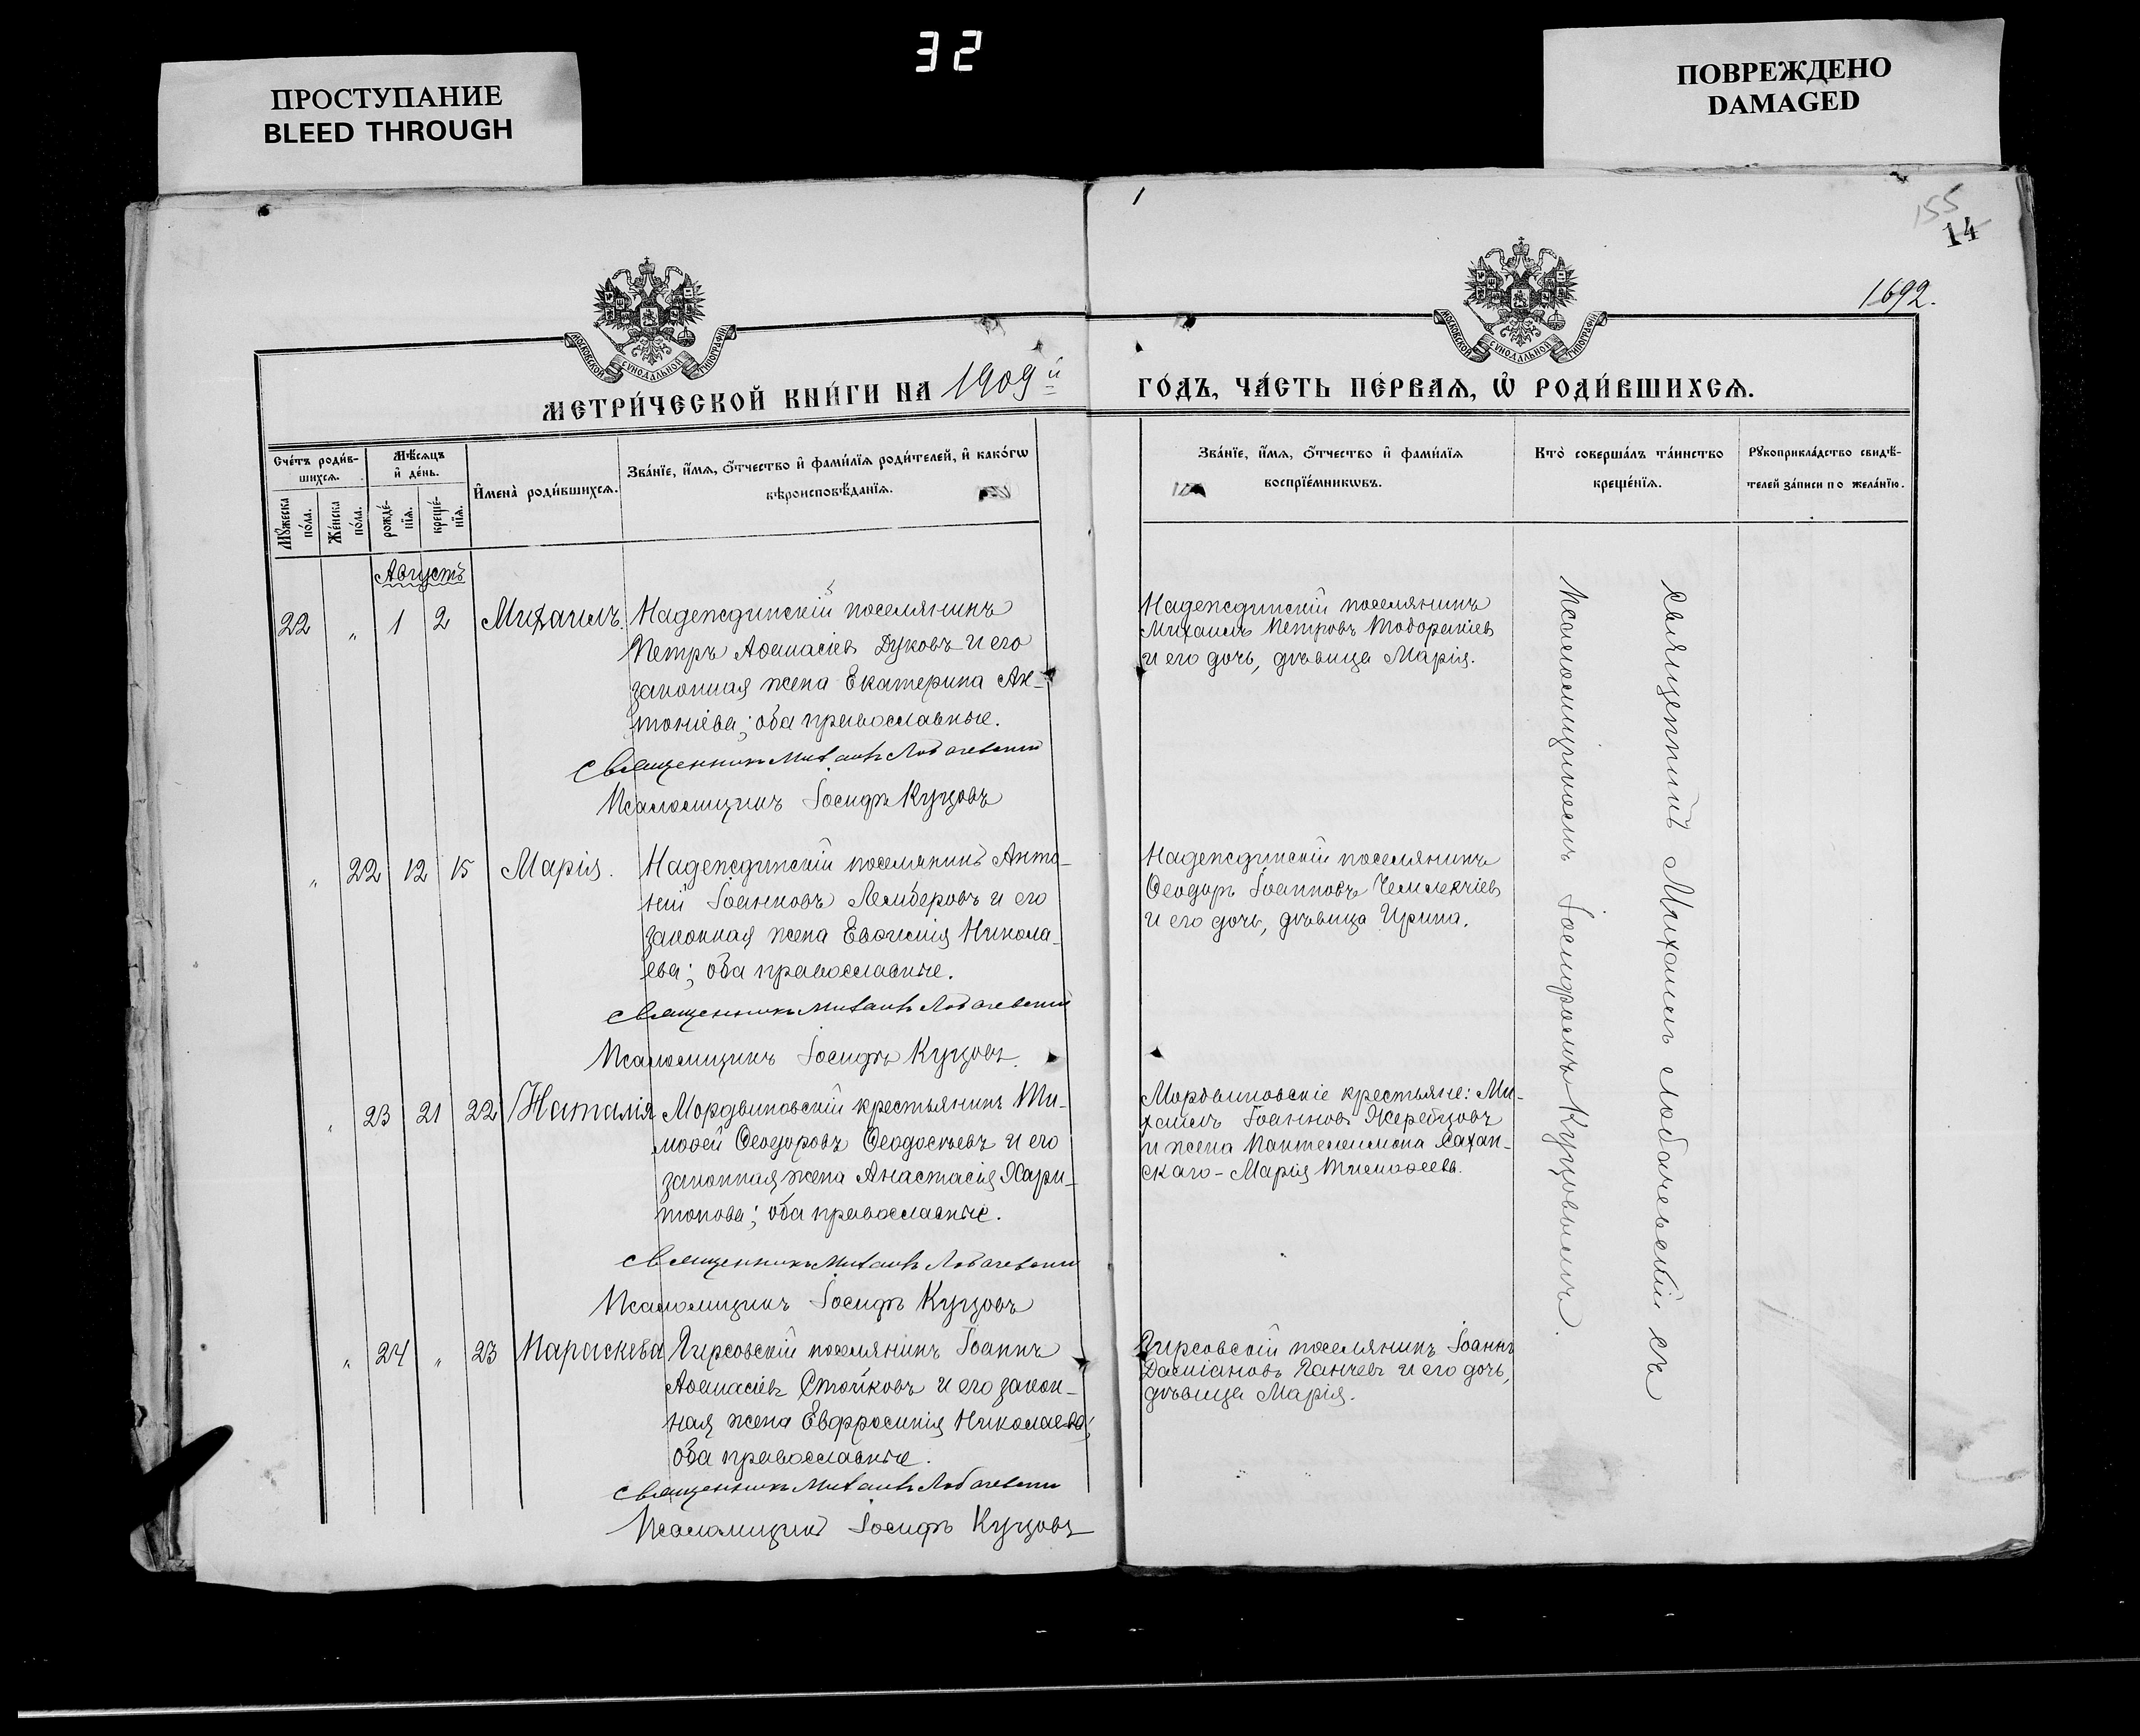 32
ПРОСТУПАНИЕ
BLEED THROUGH
ПОВРЕЖДЕНО
DAMAGED
155
14
1692.
МОСКОВСКОЙ СѴНОДАЛЬНОЙ ТИПОГРАФІИ
МОСКОВСКОЙ СѴНОДАЛЬНОЙ ТИПОГРАФІИ
МЕТРИ́ЧЕСКОЙ КНИ́ГИ НА 1909й
ГО́ДЪ, ЧА́СТЬ ПЕ́РВАѦ, Ѿ РОДИ́ВШИХСѦ.
Сче́тъ роди́в-
шихсѧ.
Мꙋ́жеска по́ла.
Же́нска по́ла.
Мѣ́сѧцъ
и҆ де́нь.
рожде́-
нїѧ.
креще́-
нїѧ.
И҆мена̀ роди́вшихсѧ.
Зва́нїе, и҆́мѧ, ѻ҆́тчество и҆ фами́лїѧ роди́телей, и҆ како́гѡ
вѣроисповѣ́данїѧ.
Зва́нїе, и҆́мѧ, ѻ҆́тчество и҆ фами́лїѧ
воспрїе́мникѡвъ.
Кто̀ соверша́лъ та́инство
креще́нїѧ.
Рꙋкоприкла́дство свидѣ́-
телей за́писи по жела́нїю.
Августъ
22 „ 1 2 Михаилъ.
Надеждинскій поселянинъ
Петръ Аѳанасіевъ Дуковъ и его
законная жена Екатерина Ан-
тоніева; оба православные.
Священникъ Михаилъ Лобачевскій
Псаломщикъ Іосифъ Куцовъ
Надеждинскій поселянинъ
Михаилъ Петровъ Тодоракіевъ
и его дочь, дѣвица Марія.
„ 22 12 15 Марія.
Надеждинскій поселянинъ Анто-
ній Іоанновъ Лемберовъ и его
законная жена Евѳимія Никола-
ева; оба православные.
Священникъ Михаилъ Лобачевскій
Псаломщикъ Іосифъ Куцовъ.
Надеждинскій поселянинъ
Ѳеодоръ Іоанновъ Чемлекчіевъ
и его дочь, дѣвица Ирина.
„ 23 21 22 Наталія
Мордвиновскій крестьянинъ Ти-
моѳей Ѳеодоровъ Ѳеодосѣевъ и его
законная жена Анастасія Хари-
тонова; оба православные.
Священникъ Михаилъ Лобачевскій
Псаломщикъ Іосифъ Куцовъ
Мордвиновскіе крестьяне: Ми-
хаилъ Іоанновъ Жеребцовъ
и жена Пантелеимона Сахан-
скаго - Марія Тимоѳеева.
„ 24 „ 23 Параскева
Гирсовскій поселянинъ Іоаннъ
Аѳанасіевъ Стойковъ и его закон-
ная жена Евфросинія Николаева;
оба православные.
Священникъ Михаилъ Лобачевскій
Псаломщикъ Іосифъ Куцовъ
Гирсовскій поселянинъ Іоаннъ
Даміановъ Ганчевъ и его дочь,
дѣвица Марія.
Священникъ Михаилъ Лобачевскій съ
псаломщикомъ Іосифомъ Куцовымъ.